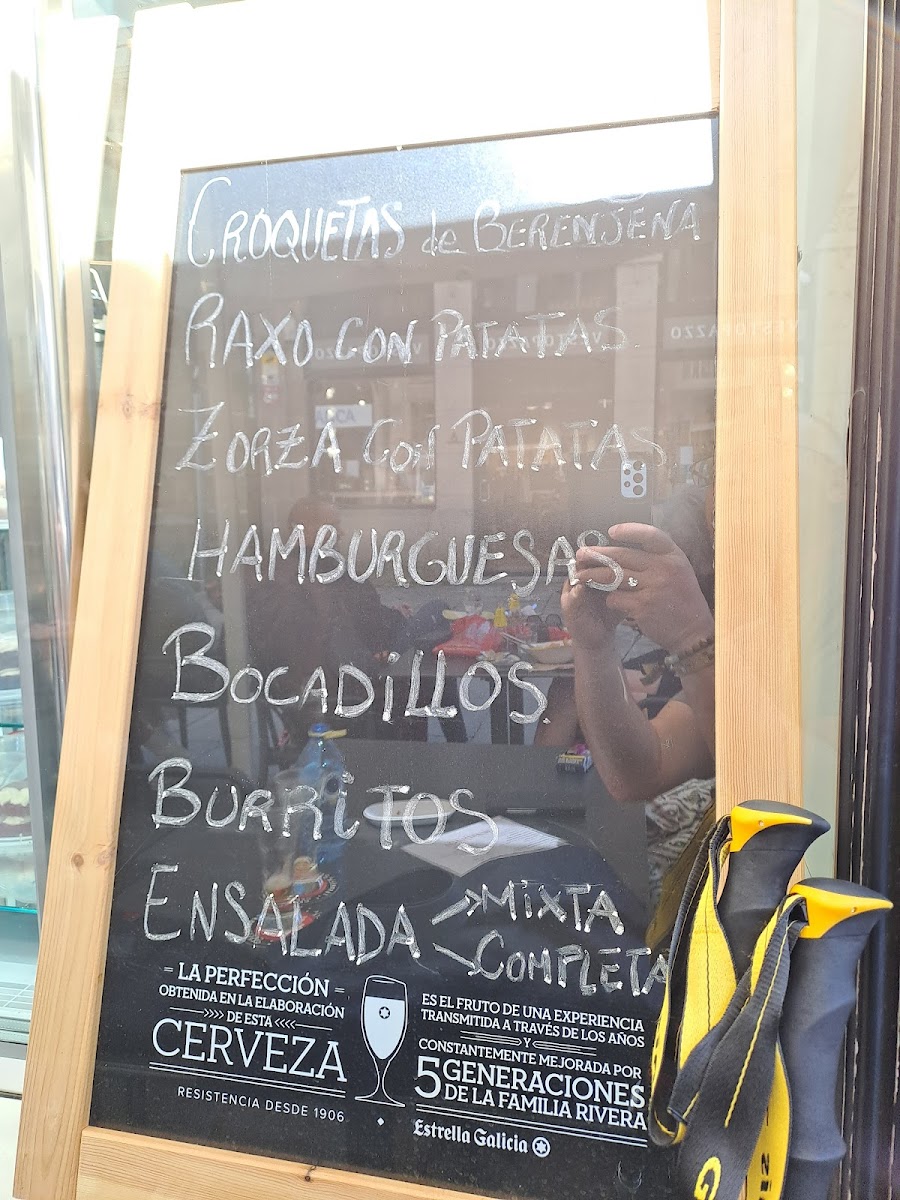 CROQUETAS de BERENJENA
RAXO CON PATATAS.
ZORZA CON PATATAS
HAMBURGUESAS.
BOCADILLOS.
BURRITOS
ENSALADA
MIXTA
COMPLETA
LA PERFECCIÓN
OBTENIDA EN LA ELABORACIÓN
DE ESTA
CERVEZA
RESISTENCIA DESDE 1906
ES EL FRUTO DE UNA EXPERIENCIA
TRANSMITIDA A TRAVÉS DE LOS AÑOS
Y
CONSTANTEMENTE MEJORADA POR
5 GENERACIONES
DE LA FAMILIA RIVERA
Estrella Galicia